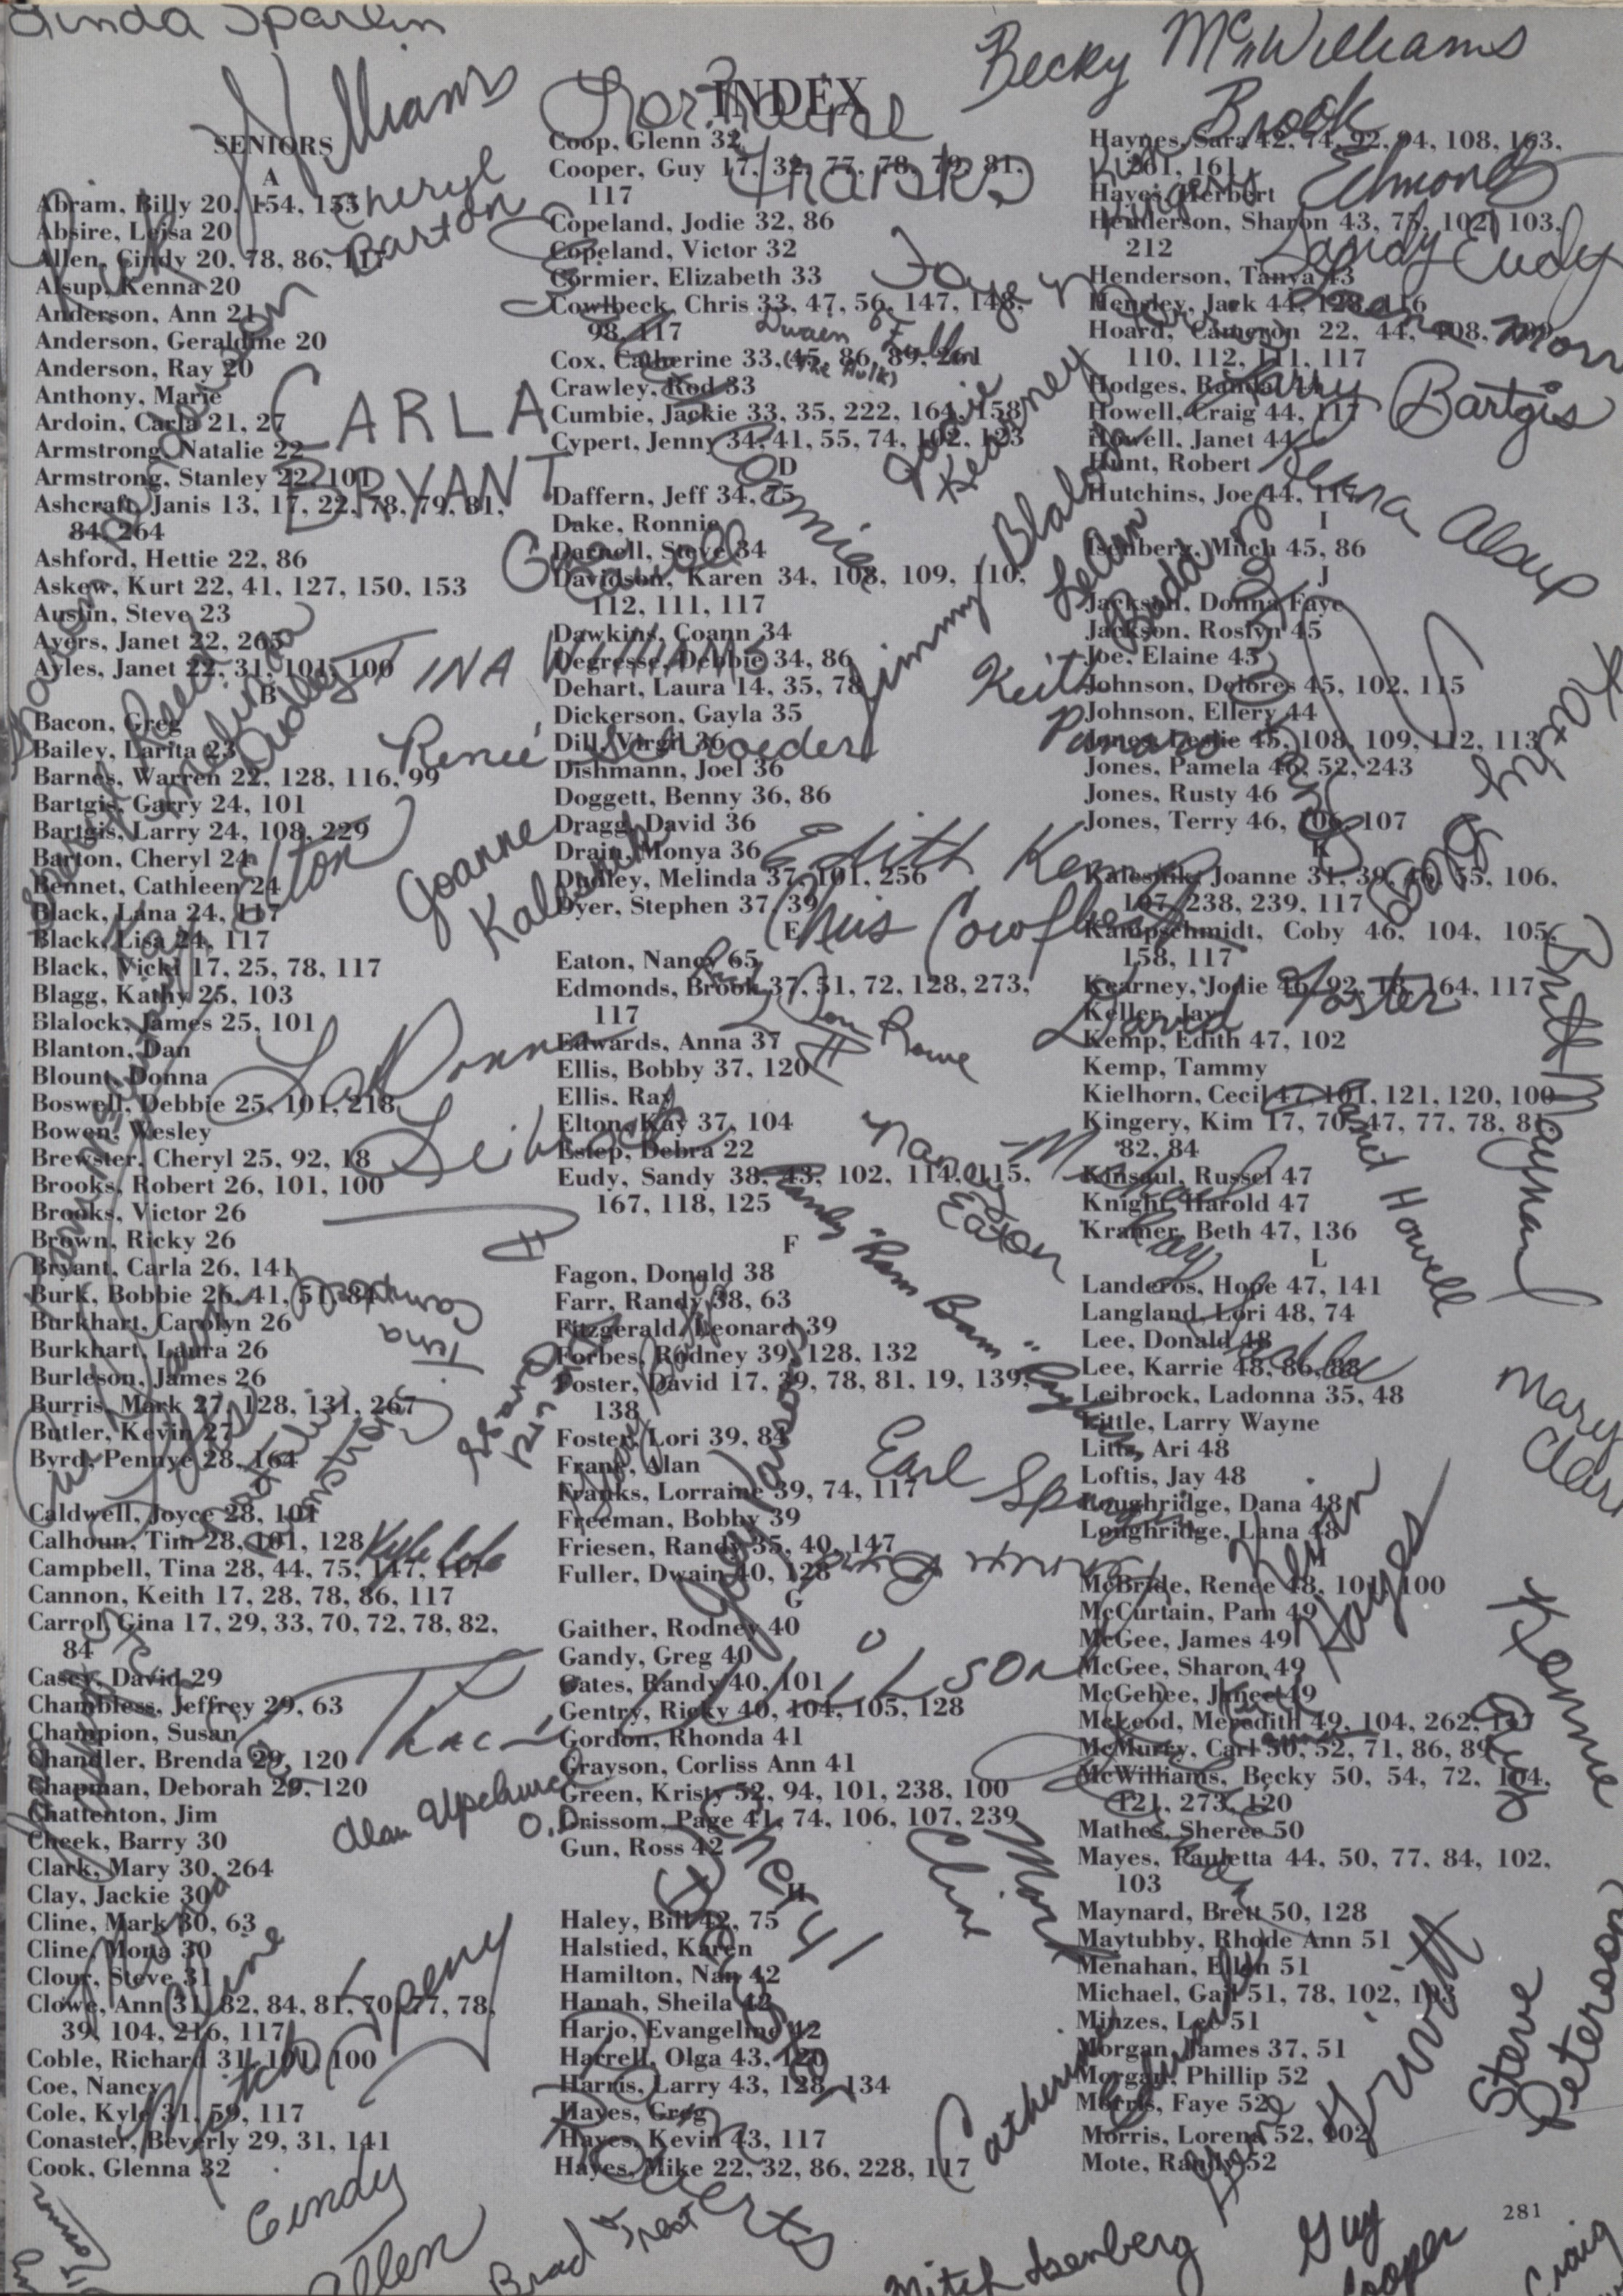 INDEX
SENIORS
A
Abram, Billy 20, 154, 155
Absire, Leisa 20
Allen, Cindy 20, 78, 86, 117
Alsup, Kenna 20
Anderson, Ann 21
Anderson, Geraldine 20
Anderson, Ray 20
Anthony, Marie
Ardoin, Carla 21, 27
Armstrong, Natalie 22
Armstrong, Stanley 22, 101
Ashcraft, Janis 13, 17, 22, 78, 79, 81,
84, 264
Ashford, Hettie 22, 86
Askew, Kurt 22, 41, 127, 150, 153
Austin, Steve 23
Ayers, Janet 22, 265
Ayles, Janet 22, 31, 101, 100
B
Bacon, Greg
Bailey, Larita 23
Barnes, Warren 22, 128, 116, 99
Bartgis, Garry 24, 101
Bartgis, Larry 24, 108, 229
Barton, Cheryl 24
Bennet, Cathleen 24
Black, Lana 24, 117
Black, Lisa 24, 117
Black, Vicki 17, 25, 78, 117
Blagg, Kathy 25, 103
Blalock, James 25, 101
Blanton, Dan
Blount, Donna
Boswell, Debbie 25, 101, 218
Bowen, Wesley
Brewster, Cheryl 25, 92, 18
Brooks, Robert 26, 101, 100
Brooks, Victor 26
Brown, Ricky 26
Bryant, Carla 26, 141
Burk, Bobbie 26, 41, 51, 84
Burkhart, Carolyn 26
Burkhart, Laura 26
Burleson, James 26
Burris, Mark 27, 128, 131, 267
Butler, Kevin 27
Byrd, Pennye 28, 164
Caldwell, Joyce 28, 101
Calhoun, Tim 28, 101, 128
Campbell, Tina 28, 44, 75, 147, 117
Cannon, Keith 17, 28, 78, 86, 117
Carrol, Gina 17, 29, 33, 70, 72, 78, 82,
84
Casey, David 29
Chambless, Jeffrey 29, 63
Champion, Susan
Chandler, Brenda 29, 120
Chapman, Deborah 29, 120
Chattenton, Jim
Cheek, Barry 30
Clark, Mary 30, 264
Clay, Jackie 30
Cline, Mark 30, 63
Cline, Mona 30
Clour, Steve 31
Clowe, Ann 31, 82, 84, 81, 70, 77, 78,
39, 104, 216, 117
Coble, Richard 31, 101, 100
Coe, Nancy
Cole, Kyle 31, 59, 117
Conaster, Beverly 29, 31, 141
Cook, Glenna 32
Coop, Glenn 32
Cooper, Guy 17, 32, 77, 78, 79, 81,
117
Copeland, Jodie 32, 86
Copeland, Victor 32
Cormier, Elizabeth 33
Cowlbeck, Chris 33, 47, 56, 147, 148,
98, 117
Cox, Catherine 33, 45, 86, 89, 261
Crawley, Rod 33
Cumbie, Jackie 33, 35, 222, 164, 158
Cypert, Jenny 34, 41, 55, 74, 102, 123
D
Daffern, Jeff 34, 75
Dake, Ronnie
Darnell, Steve 34
Davidson, Karen 34, 108, 109, 110,
112, 111, 117
Dawkins, Coann 34
Degresse, Debbie 34, 86
Dehart, Laura 14, 35, 78
Dickerson, Gayla 35
Dill, Virgil 36
Dishmann, Joel 36
Doggett, Benny 36, 86
Dragg, David 36
Drain, Monya 36
Dudley, Melinda 37, 101, 256
Dyer, Stephen 37, 39
E
Eaton, Nancy 65
Edmonds, Brook 37, 51, 72, 128, 273,
117
Edwards, Anna 37
Ellis, Bobby 37, 120
Ellis, Ray
Elton, Kay 37, 104
Estep, Debra 22
Eudy, Sandy 38, 43, 102, 114, 115,
167, 118, 125
F
Fagon, Donald 38
Farr, Randy 38, 63
Fitzgerald, Leonard 39
Forbes, Rodney 39, 128, 132
Foster, David 17, 39, 78, 81, 19, 139,
138
Foster, Lori 39, 84
Frank, Alan
Franks, Lorraine 39, 74, 117
Freeman, Bobby 39
Friesen, Randy 35, 40, 147
Fuller, Dwain 40, 128
G
Gaither, Rodney 40
Gandy, Greg 40
Gates, Randy 40, 101
Gentry, Ricky 40, 104, 105, 128
Gordon, Rhonda 41
Grayson, Corliss Ann 41
Green, Kristy 52, 94, 101, 238, 100
Grissom, Page 41, 74, 106, 107, 239
Gun, Ross 42
H
Haley, Bill 42, 75
Halstied, Karen
Hamilton, Nan 42
Hanah, Sheila 42
Harjo, Evangeline 42
Harrell, Olga 43, 120
Harris, Larry 43, 128, 134
Hayes, Greg
Hayes, Kevin 43, 117
Hayes, Mike 22, 32, 86, 228, 117
Haynes, Sara 42, 74, 92, 94, 108, 163,
261, 161
Hayes, Herbert
Henderson, Sharon 43, 75, 102, 103,
212
Henderson, Tanya 43
Hensley, Jack 44, 128, 116
Hoard, Cameron 22, 44, 108, 109,
110, 112, 111, 117
Hodges, Randal 44
Howell, Craig 44, 117
Howell, Janet 44
Hunt, Robert
Hutchins, Joe 44, 117
I
Isenberg, Mitch 45, 86
J
Jackson, Donna Faye
Jackson, Roslyn 45
Joe, Elaine 45
Johnson, Delores 45, 102, 115
Johnson, Ellery 44
Jones, Leslie 45, 108, 109, 112, 113
Jones, Pamela 46, 52, 243
Jones, Rusty 46
Jones, Terry 46, 106, 107
K
Kalesnik, Joanne 31, 39, 46, 55, 106,
107, 238, 239, 117
Kampschmidt, Coby 46, 104, 105,
158, 117
Kearney, Jodie 46, 92, 18, 164, 117
Keller, Jay
Kemp, Edith 47, 102
Kemp, Tammy
Kielhorn, Cecil 47, 101, 121, 120, 100
Kingery, Kim 17, 70, 47, 77, 78, 81,
82, 84
Kinsaul, Russel 47
Knight, Harold 47
Kramer, Beth 47, 136
L
Landeros, Hope 47, 141
Langland, Lori 48, 74
Lee, Donald 48
Lee, Karrie 48, 86, 88
Leibrock, Ladonna 35, 48
Little, Larry Wayne
Litts, Ari 48
Loftis, Jay 48
Loughridge, Dana 48
Loughridge, Lana 48
M
McBride, Renee 48, 101, 100
McCurtain, Pam 49
McGee, James 49
McGee, Sharon 49
McGehee, Janee 49
McLeod, Meredith 49, 104, 262, 137
McMurty, Carl 50, 52, 71, 86, 89
McWilliams, Becky 50, 54, 72, 104,
121, 273, 120
Mathes, Sheree 50
Mayes, Pauletta 44, 50, 77, 84, 102,
103
Maynard, Brett 50, 128
Maytubby, Rhode Ann 51
Menahan, Ellen 51
Michael, Gail 51, 78, 102, 103
Minzes, Lee 51
Morgan, James 37, 51
Morgan, Phillip 52
Morris, Faye 52
Morris, Lorena 52, 102
Mote, Randy 52
281
Linda Sparlin
Kirk Williams
Cheryl
Barton
Lorraine
Franks
Becky McWilliams
Brook
Edmonds
Kim
Kingery
Sandy Eudy
Faye Morris
Dwaen Fuller
(The Hulk)
Larry Bartgis
Jodie
Kearney
CARLA
BRYANT
Jimmy Blalock
Kenna Alsup
TINA WILLIAMS
Reneé Schroeder
Melinda
Dudley
Kay Elton
Joanne
Kalesnik
Keith
Edith Kemp
Chris Cowlbeck
Kathy Blagg
David Foster
Ron Rowe
LaDonna
Leibrock
Nancy
Eaton
Janet Howell
Brett Maynard
Tina
Campbell
Randy "Bam Bam"
Mary
Clark
Kyle Cole
Kevin
Hayes
Traci Wilson
Alan Upchurch
Mark
Cline
Mona
Cline
Mitch Speny
Catherine
Edwards
Steve
Peterson
Cindy
Allen
Brad Trest
Mitch Isenberg
Guy
Cooper
Craig